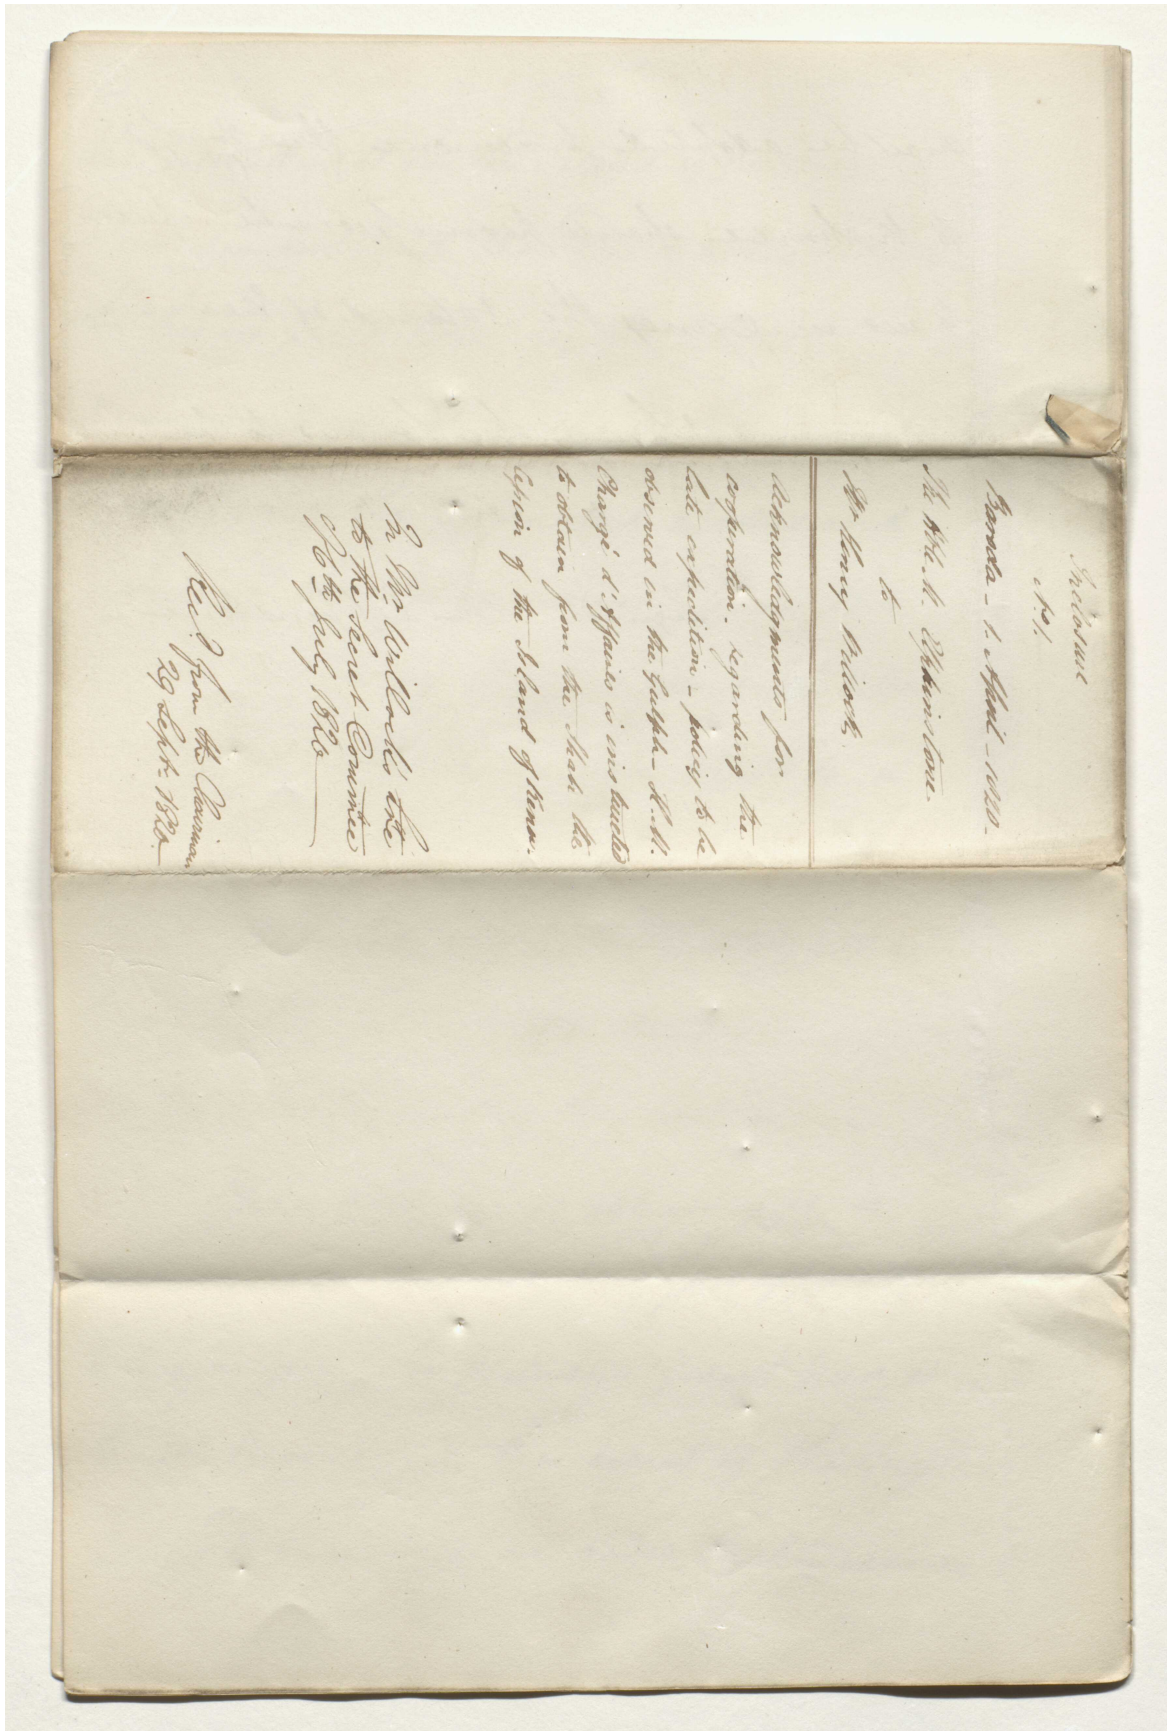 Inclosure
No. 1.
Baroda_ 1. April_ 1820_
The Hble. M. Elphinstone.
to
Mr. Henry Willock.
Acknowledgments for
cooperation. regarding the
late expedition_ policy to be
observed in the Gulph_ H.M.
Chargé d'Affaires is instructed
to obtain from the Shah the
Cession of the Island of Kenn.
In Mr. Willock's Lre
to the Secret Commee
of 6th July 1820
Recd from the Chairman
29 Septr. 1820.